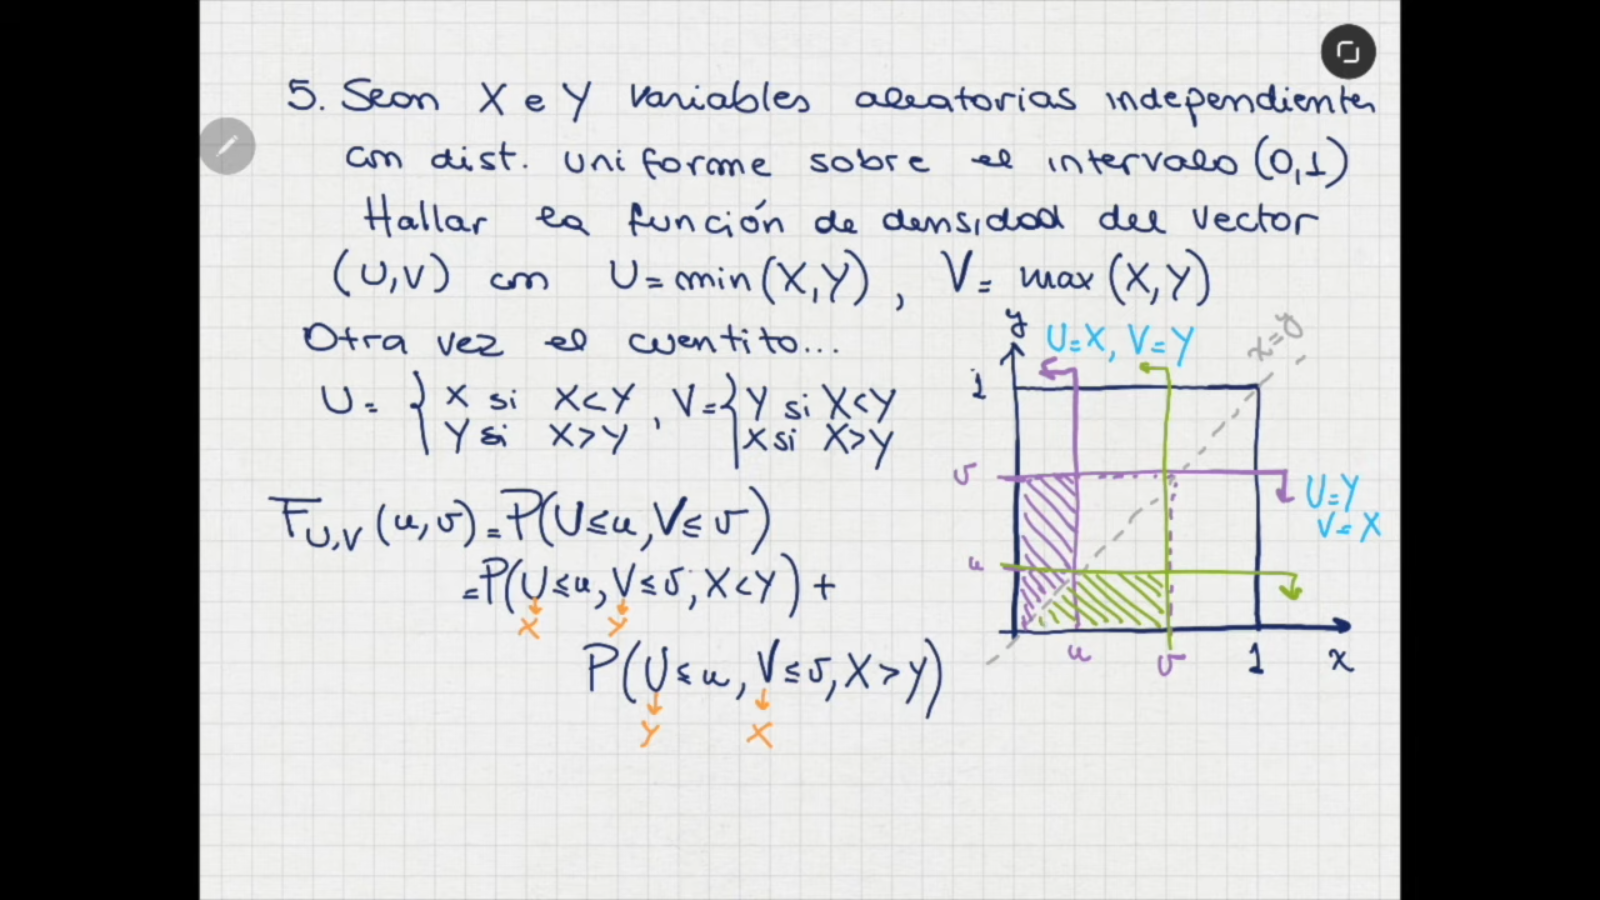 5. Sean X e Y variables aleatorias independientes
con dist. uniforme sobre el intervalo (0,1)
Hallar la función de densidad del vector
(U,V) con U=min(X,Y), V=max(X,Y)
Otra vez el cuentito...
U = { X si X<Y , V = { Y si X<Y
Y si X>Y X si X>Y
F_{U,V}(u,v) = P(U≤u, V≤v)
= P(U≤u, V≤v, X<Y) +
X Y
P(U≤u, V≤v, X>Y)
Y X
y
U=X, V=Y
x=y
1
v
U=Y
V=X
u
u v 1 x